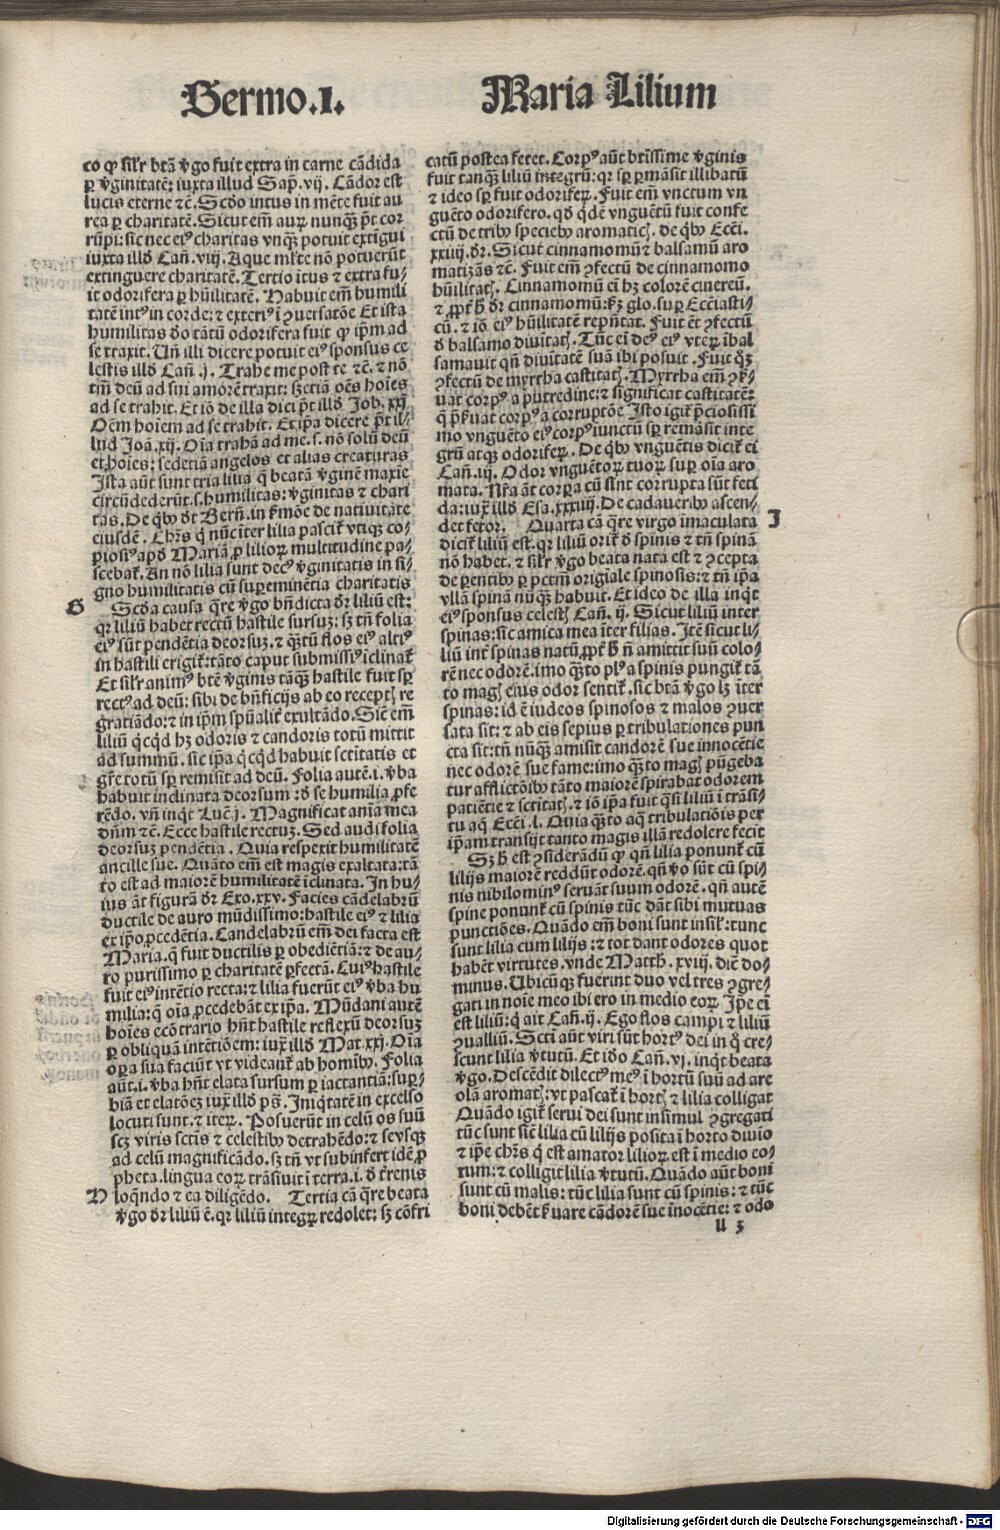 Sermo.I. Maria Lilium
co ꝙ silr btā ꝟgo fuit extra in carne cādida
ꝑ ꝟginitatē: iuxta illud Sap̄. vij. Cādor est
lucis eterne ⁊ē. Scdo intus in mēte fuit au
rea ꝑ charitatē. Sicut em̄ auꝝ nunqꝫ pt̄ cor
rūpi: sic nec eiꝰ charitas vnqꝫ potuit extīgui
iuxta illd Cañ. viij. Aque ml̄te nō potuerūt
extinguere charitatē. Tertio ītus ⁊ extra fu⸗
it odorifera ꝑ hūilitatē. Habuit em̄ humili
tatē intꝰ in corde: ⁊ exteriꝰ ī ꝯuersatōe Et ista
humilitas do tātū odorifera fuit ꝙ ip̄m ad
se traxit. Uñ illi dicere potuit eiꝰ sponsus ce
lestis illd Cañ. j. Trahe me post te ⁊ē. ⁊ nō
tm̄ deū ad sui amorē traxit: sꝫetiā oēs hoīes
ad se trahit. Et iō de illa dici pt̄ illd Job. xxj.
Oēm hoīem ad se trahit. Et ip̄a dicere pt̄ il⸗
lud Joā. xij. Oīa trahā ad me. s. nō solū deū
et hoīes: sedetiā angelos et alias creaturas
Ista aūt sunt tria lilia q̄ beatā ꝟginē maxīe
circūdederūt. s. humilitas: ꝟginitas ⁊ chari
tas. De qbꝰ dt Berñ. in ẜmōe de natiuitate
eiusdē. Chrs̄ q nūc iter lilia pascit vtiqꝫ co⸗
piosiꝰ apd Mariā ꝓ lilioꝝ multitudine pa⸗
scebat. An nō lilia sunt decꝰ ꝟginitatis in si⸗
gno humilitatis cū supeminētia charitatis
G Scda causa qre ꝟgo bn̄dicta dr liliū est:
qr liliū habet rectū hastile sursuꝫ: sꝫ tn̄ folia
eiꝰ sūt pendētia deorsuꝫ. ⁊ qꝫtū flos eiꝰ altiꝰ
in hastili erigit: tāto caput submissiꝰ īclinat
Et silr animꝰ btē ꝟginis tāqꝫ hastile fuit sp
rectꝰ ad deū: sibi de bn̄ficijs ab eo recept re
gratiādo: ⁊ in ip̄m spūalit exultādo. Sic em̄
liliū qcqd hꝫ odoris ⁊ candoris totū mittit
ad summū. sic ip̄a qcqd habuit sctitatis et
gr̄e totū sp remisit ad deū. Folia autē. i. ꝟba
habuit inclinata deorsum: d se humilia ꝓfe
rēdo. vñ inqt Luc̄. j. Magnificat anīa mea
dn̄m ⁊ē. Ecce hastile rectuꝫ. Sed audi folia
deorsuꝫ pendētia. Quia respexit humilitatē
ancille sue. Quāto em̄ est magis exaltata: tā
to est ad maiorē humilitatē īclinata. In hu⸗
ius āt figurā dr Exo. xxv. Facies cādelabrū
ductile de auro mūdissimo: hastile eiꝰ ⁊ lilia
ex ip̄o ꝓcedētia. Candelabrū em̄ dei facta est
Maria. q̄ fuit ductilis ꝑ obediētiā: ⁊ de au⸗
ro purissimo ꝑ charitatē ꝑfectā. Cuiꝰ hastile
fuit eiꝰ intētio recta: ⁊ lilia fuerūt eiꝰ ꝟba hu
milia: q̄ oīa ꝓcedebāt ex ip̄a. Mūdani autē
hoīes ecōtrario hn̄t hastile reflexū deorsuꝫ
ꝑ obliquā intētiōem: iux illd Mat. xxij. Oīa
oꝑa sua faciūt vt videant ab homībꝰ. Folia
aūt. i. ꝟba hn̄t elata sursum ꝑ iactantiā: sup⸗
biā et elatōeꝫ iux illd ps̄. Iniqtatē in excelso
locuti sunt. ⁊ iteꝝ. Posuerūt in celū os suū
scꝫ viris sctis ⁊ celestibꝰ detrahēdo: ⁊ seysqꝫ
ad celū magnificādo. sꝫ tn̄ vt subinfert idē ꝓ
pheta. lingua eoꝝ trāsiuit ī terra. i. d trēnis
H loqndo ⁊ ea diligēdo. Tertia cā qre beata
ꝟgo dr liliū ē. qr liliū integꝝ redolet: sꝫ cōfri
catū postea fetet. Corpꝰ aūt btīssime ꝟginis
fuit tanqꝫ liliū integrū: qr sp ꝑmāsit illibatū
⁊ ideo sp fuit odorifeꝝ. Fuit em̄ vnctum vn
guēto odorifero. qd qdē vnguētū fuit confe
ctū de tribꝰ speciebꝰ aromatic. de qbꝰ Ecc̄i.
xxiiij. dr. Sicut cinnamomū ⁊ balsamū aro
matizās ⁊ē. Fuit em̄ ꝯfectū de cinnamomo
hūilitat. Cinnamomū ei hꝫ colorē cinereū.
⁊ ꝓpt h dr cinnamomū: ẜꝫ glo. sup Ecc̄iasti⸗
cū. ⁊ iō eiꝰ hūilitatē rep̄ntat. Fuit ēt ꝯfectū
d balsamo diuitat. Tūc ei deꝰ eiꝰ vteꝝ ībal
samauit qn̄ diuitatē suā ibi posuit. Fuit qꝫ
ꝯfectū de myrrha castitat. Myrrha em̄ ꝯẜ⸗
uat corpꝰ a putredine: ⁊ significat castitatē:
q̄ p̄ẜuat corpꝰ a corruptōe Isto igit p̄ciosissi
mo vnguēto eiꝰ corpꝰ iunctū sp remāsit inte
grū atqꝫ odorifeꝝ. De qbꝰ vnguētis dicit ei
Cañ. iij. Odor vnguētoꝝ tuoꝝ sup oīa aro
mata. Nr̄a āt corpa cū sint corrupta sūt feti
da: iux illd Esa. xxxiiij. De cadaueribꝰ ascen⸗
det fetor. Quarta cā qre virgo īmaculata J
dicit liliū est. qr liliū orit d spinis ⁊ tn̄ spinā
nō habet. ⁊ silr ꝟgo beata nata est ⁊ ꝯcepta
de parentibꝰ ꝑ pctm̄ origiale spinosis: ⁊ tn̄ ip̄a
vllā spinā nūqꝫ habuit. Et ideo de illa inqt
eiꝰ sponsus celest Cañ. ij. Sicut liliū inter
spinas: sic amica mea īter filias. Itē sicut li⸗
liū int spinas natū ꝓpt h nō amittit suū colo⸗
rē nec odorē. imo qꝫto plꝰ a spinis pungit tā
to mag eius odor sentit. sic btā ꝟgo lꝫ iter
spinas: id ē iudeos spinosos ⁊ malos ꝯuer
sata sit: ⁊ ab eis sepius ꝑ tribulationes pun
cta sit: tn̄ nūqꝫ amisit candorē sue innocētie
nec odorē sue fame: imo qꝫto mag pūgeba
tur afflictōibꝰ tāto maiorē spirabat odorem
patiētie ⁊ sctitat. ⁊ iō ip̄a fuit qsi liliū ī trāsi⸗
tu aq̄ Ecc̄i. l. Quia qꝫto aq̄ tribulatiōis per
ip̄am transijt tanto magis illā redolere fecit
Sꝫ h est ꝯsiderādū ꝙ qn̄ lilia ponunt cū
lilijs maiorē reddūt odorē. qn̄ vo sūt cū spi⸗
nis nihilominꝰ seruāt suum odorē. qn̄ autē
spine ponunt cū spinis tūc dāt sibi mutuas
punctiōes. Quādo em̄ boni sunt insil: tunc
sunt lilia cum lilijs: ⁊ tot dant odores quot
habēt virtutes. vnde Matth. xviij. dic̄ do⸗
minus. Ubicūqꝫ fuerint duo vel tres ꝯgre⸗
gati in noīe meo ibi ero in medio eoꝝ. Ip̄e ei
est liliū: q̄ ait Cañ. ij. Ego flos campi ⁊ liliū
ꝯualliū. Scti aūt viri sūt hortꝰ dei in q cre⸗
scunt lilia ꝟtutū. Et ido Cañ. vj. inqt beata
ꝟgo. Descēdit dilectꝰ meꝰ ī hortū suū ad are
olā aromat: vt pascat ī hort ⁊ lilia colligat
Quādo igit serui dei sunt insimul ꝯgregati
tūc sunt sic lilia cū lilijs posita ī horto diuīo
⁊ ip̄e chrs̄ q est amator lilioꝝ est ī medio eo⸗
rum: ⁊ colligit lilia ꝟtutū. Quādo aūt boni
sunt cū malis: tūc lilia sunt cū spinis: ⁊ tūc
boni debēt ẜuare cādorē sue inocētie: ⁊ odo
ll 3
Digitalisierung gefördert durch die Deutsche Forschungsgemeinschaft - DFG